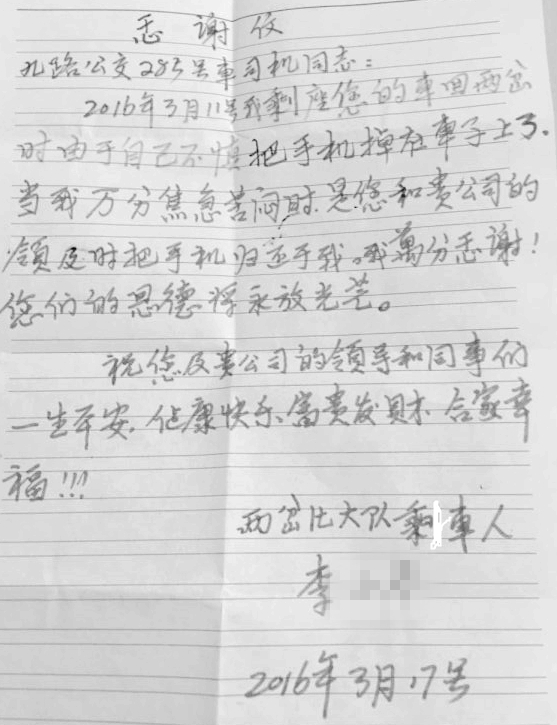 感谢仪
九路公交285号車司机同志：
2016年3月11号我剩座您的車回两岔
时由于自己不慎把手机掉在車子上了.
当我万分焦急苦闷时.是您和贵公司的
领及时把手机归还于我。我萬分感谢！
您们的恩德将永放光芒。
祝您及贵公司的领导和同事们
一生平安.健康快乐.富贵发财.合家幸
福!!!
两岔 大队剩車人
李
2016年3月17号